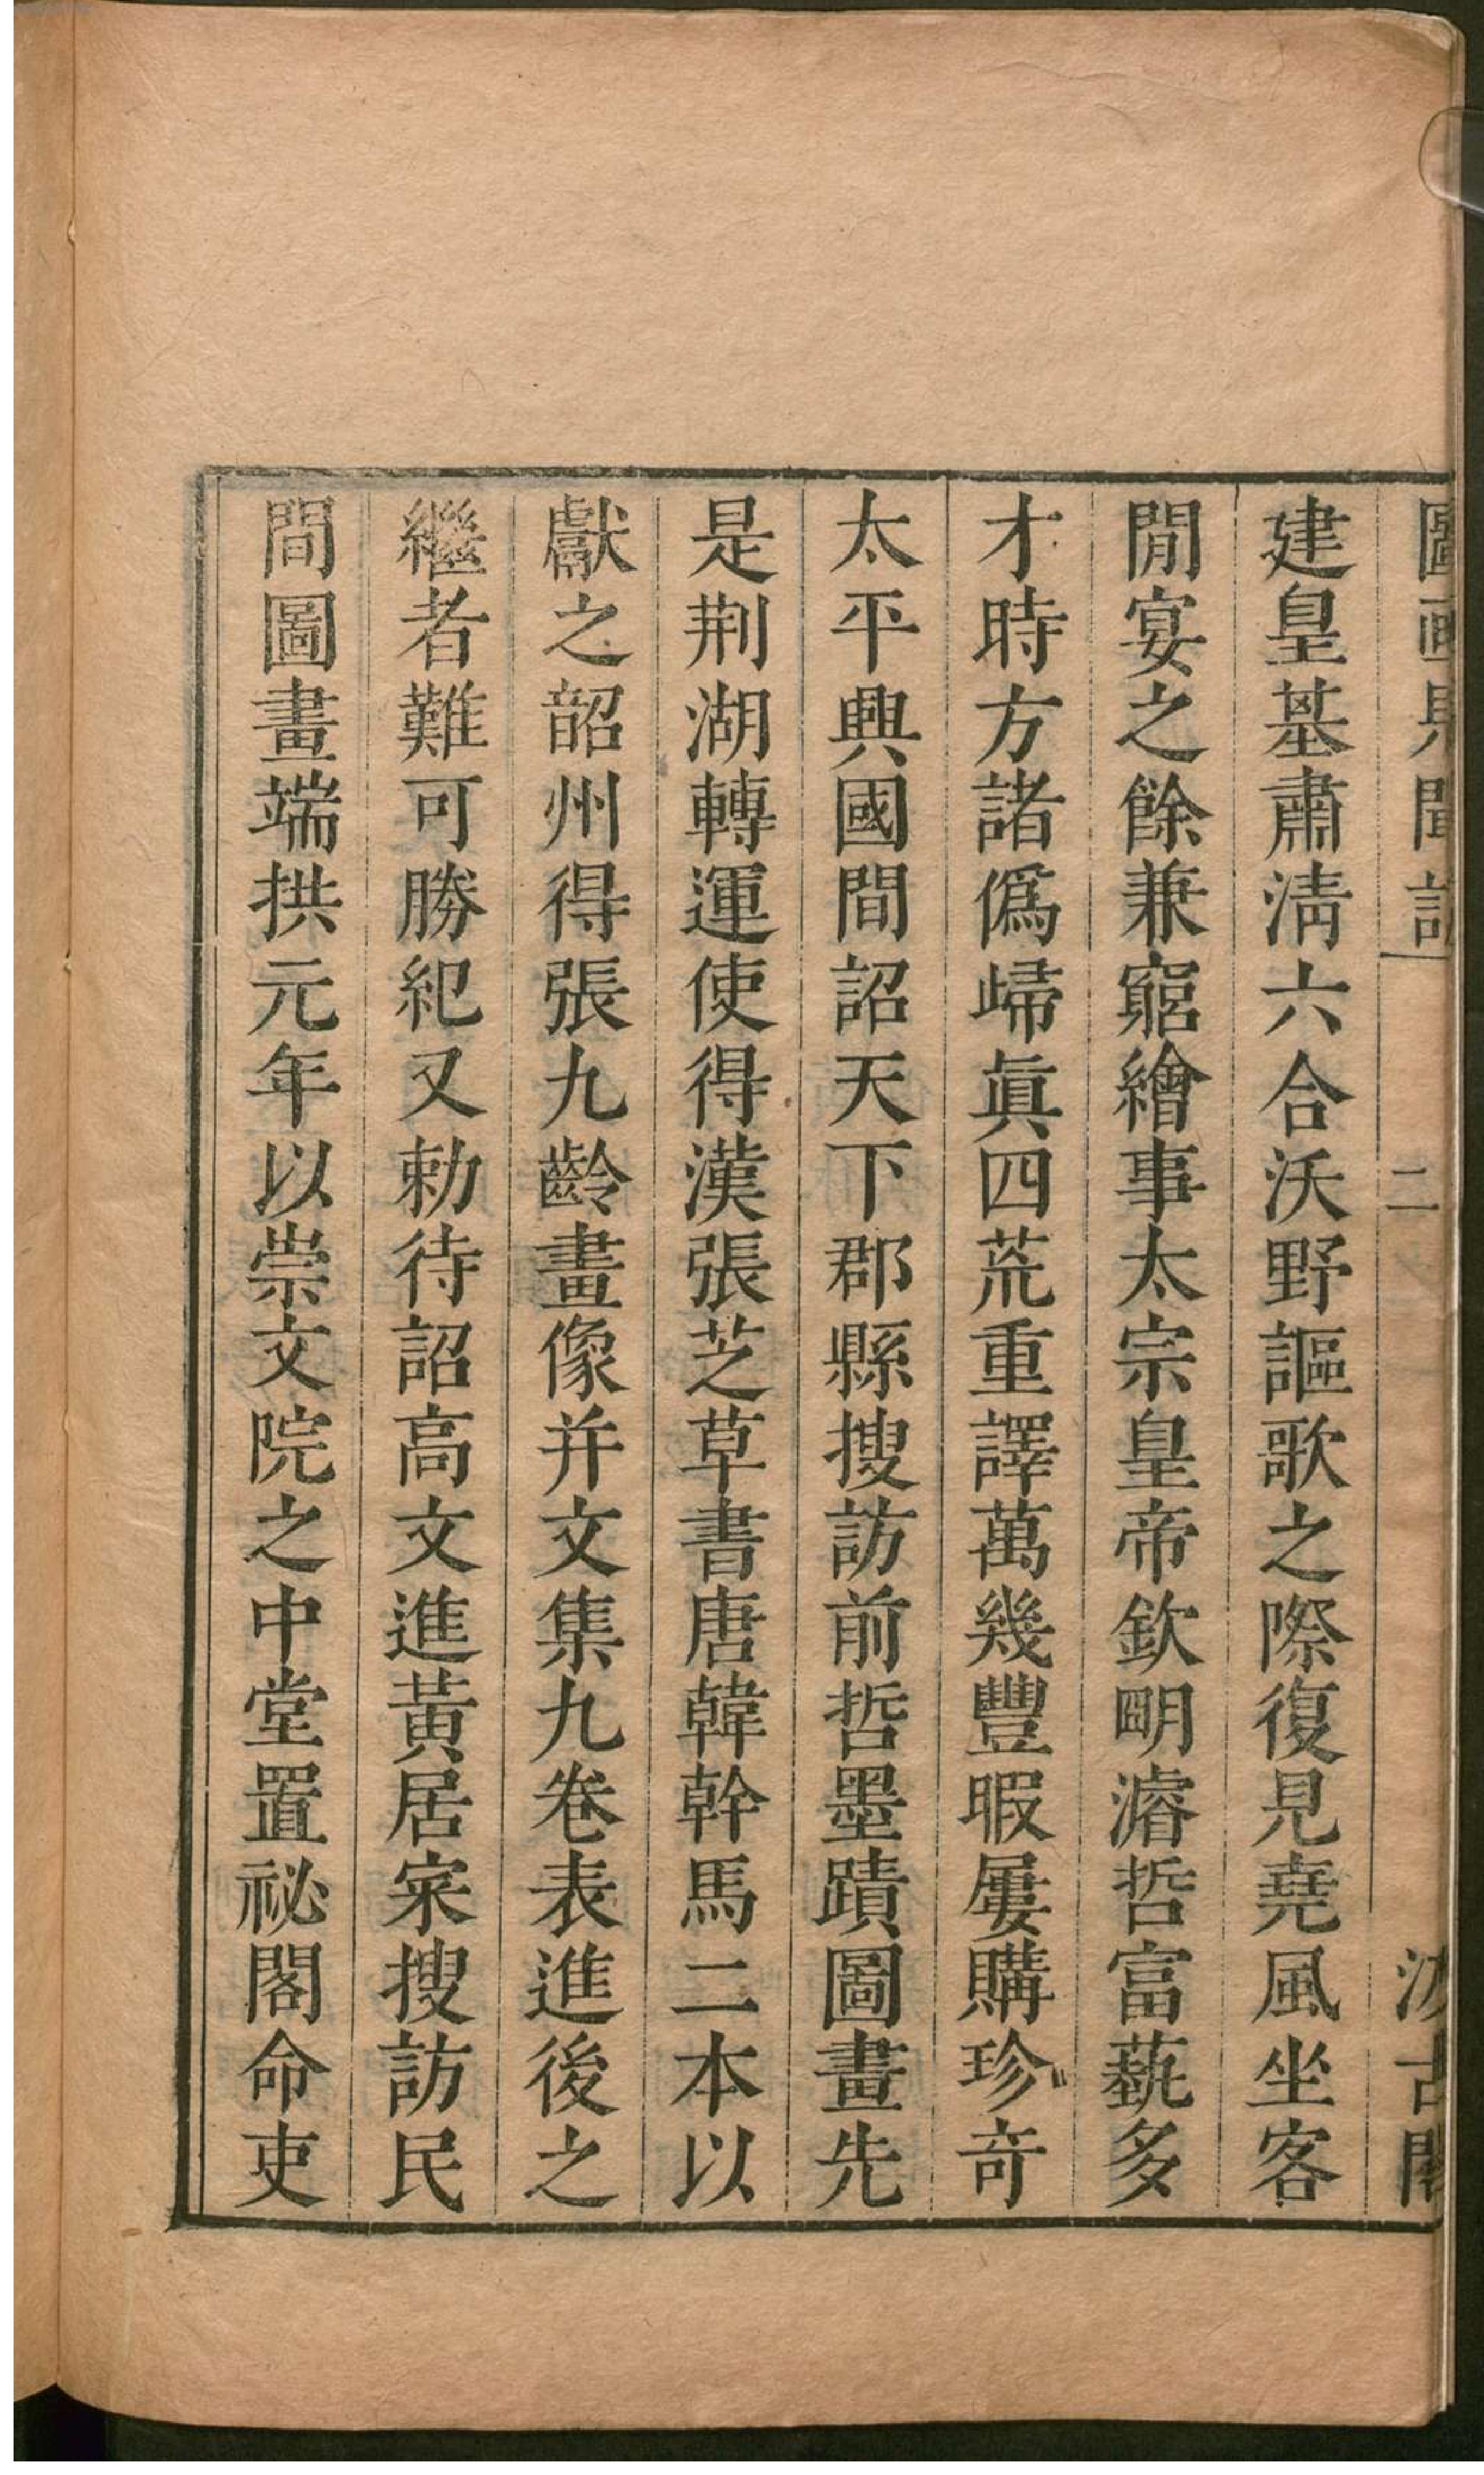 圖畫見聞誌 二 汲古閣
建皇基肅淸六合沃野謳歌之際復見堯風坐客
閒宴之餘兼窮繪事太宗皇帝欽明濬哲富藝多
才時方諸僞歸眞四荒重譯萬幾豐暇屢購珍奇
太平興國間詔天下郡縣搜訪前哲墨蹟圖畫先
是荆湖轉運使得漢張芝草書唐韓幹馬二本以
獻之韶州得張九齡畫像并文集九卷表進後之
繼者難可勝紀又勅待詔高文進黃居寀搜訪民
間圖畫端拱元年以崇文院之中堂置祕閣命吏